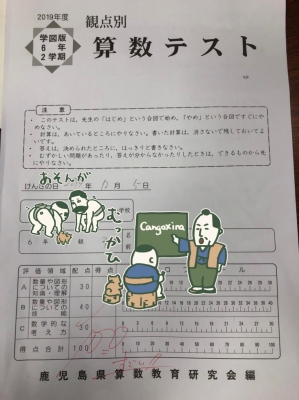 2019年度
学図版
6年
2学期
観点別
算数テスト
注意
・このテストは，先生の「はじめ」という合図で始め，「やめ」という合図ですぐにやめなさい。
・計算は，あいているところにやりなさい。書いた計算は，消さないで残しておいてよいです。
・答えは，決められたところに，はっきりと書きなさい。
・むずかしい問題があったり，答えが分からなかったりしたときは，できるものから先にやりなさい。
けんさの日 年 月 5日
あそんが
むっかひ
Cangoxina
学校
6年 級
評価領域 配点 得点
A 数量や図形についての知識・理解 30
10 20 30
B 数量や図形についての技能 40
10 20 30 40
C 数学的な考え方 30
10 20 30
得点合計 100
10 20 30 40 50 60 70 80 90 100
鹿児島県算数教育研究会編